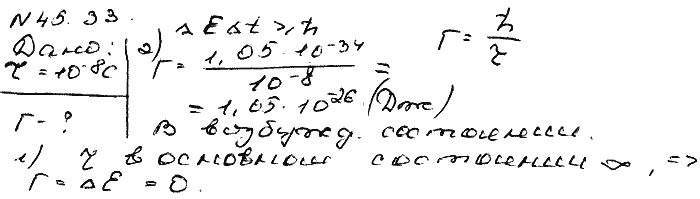 N 45.33.
Дано:
τ = 10⁻⁸ c
Г - ?
2) ΔEΔt ≥ ħ
Г = ħ/τ
Г = 1,05·10⁻³⁴/10⁻⁸ =
= 1,05·10⁻²⁶ (Дж)
В возбужд. состоянии.
1) τ в основном состоянии ∞, =>
Г = ΔE = 0.